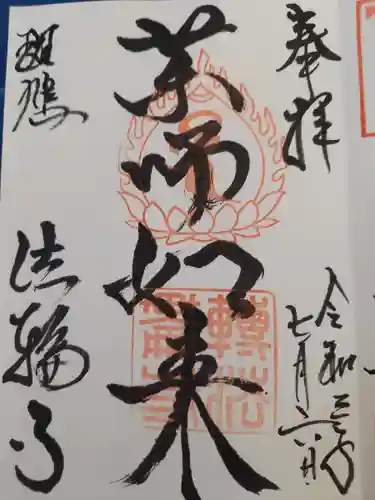 奉拝
令和三年
七月
薬師如来
斑鳩
法輪寺